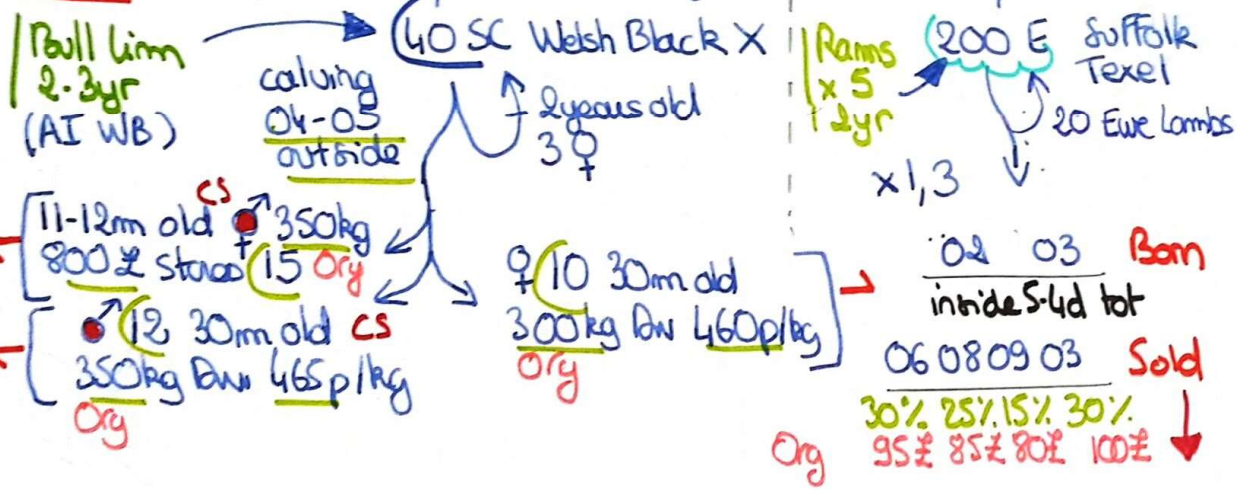 Bull Lim
2-3yr
(AI WB)
calving
04-05
outside
40 SC Welsh Black X
2 years old
3 ♀
11-12m old ♂ CS 350kg
♀
800 £ stores 15 Org
♂ 12 30m old CS
350kg Dw 465p/kg
Org
♀ 10 30m old
300kg Dw 460p/kg
Org
Rams
x 5
2yr
200 E Suffolk
Texel
20 Ewe Lambs
x1,3
02 03 Born
inside 5-4d tot
06 08 09 03 Sold
30% 25% 15% 30%
Org 95£ 85£ 80£ 100£